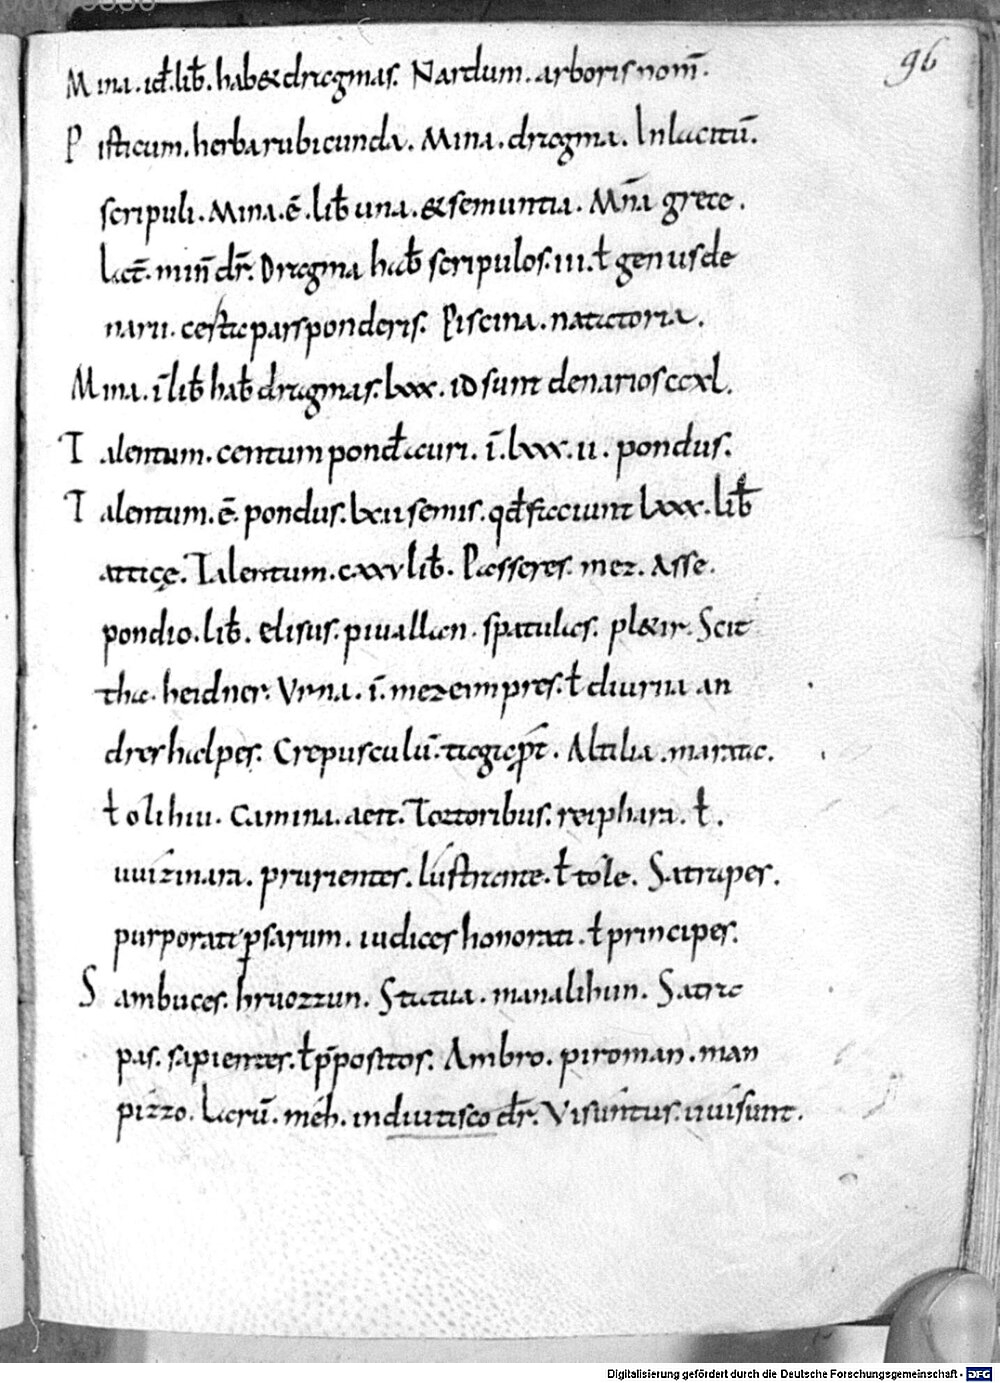 96
Mina. id̄. lib̄. hab& dragmas. Nardum. arboris nom̄.
Pisticum. herba rubicunda. Mina. dragma. In lacitū.
scripuli. Mina. ē. lib̄ una. & semuntia. Mn̄a grece.
lat̄. min̄ dr̄. Dragma hab̄ scripulos. III. ł genus de
narii. pars ponderis. Piscina. natatoria.
Mina. ī. lib̄ hab̄ dragmas. lxxx. id sunt denarios ccxl.
Talentum. centum pond̄. auri. ī. lxxx. II. pondus.
Talentum. ē. pondus. lxII semis. qd̄ faciunt lxxx. lib̄
atticę. Talentum. cxxv lib̄. Passeres. mez. Asse.
pondio. lib̄. Elisus. piuallan. spatulas. pl&ir. Scit
thae. heidner. Vrna. ī. mez eimpres. ł diurna an
dres halpes. Crepusculū. tagap̄t. Altilia. marata.
ł olihiu. Camina. aeit. Tortoribus. reiphari. ł.
uuizinara. prurientes. lustrante. ł tole. Satrapes.
purporati persarum. iudices honorati. ł principes.
Sambuces. hruozzun. Statua. manalihun. Satra
pas. sapientes. ł p̄positos. Ambro. piroman. man
pizzo. Lacrū. meh. indiutisco dr̄. Visuntus. uuisunt.
Digitalisierung gefördert durch die Deutsche Forschungsgemeinschaft - DFG